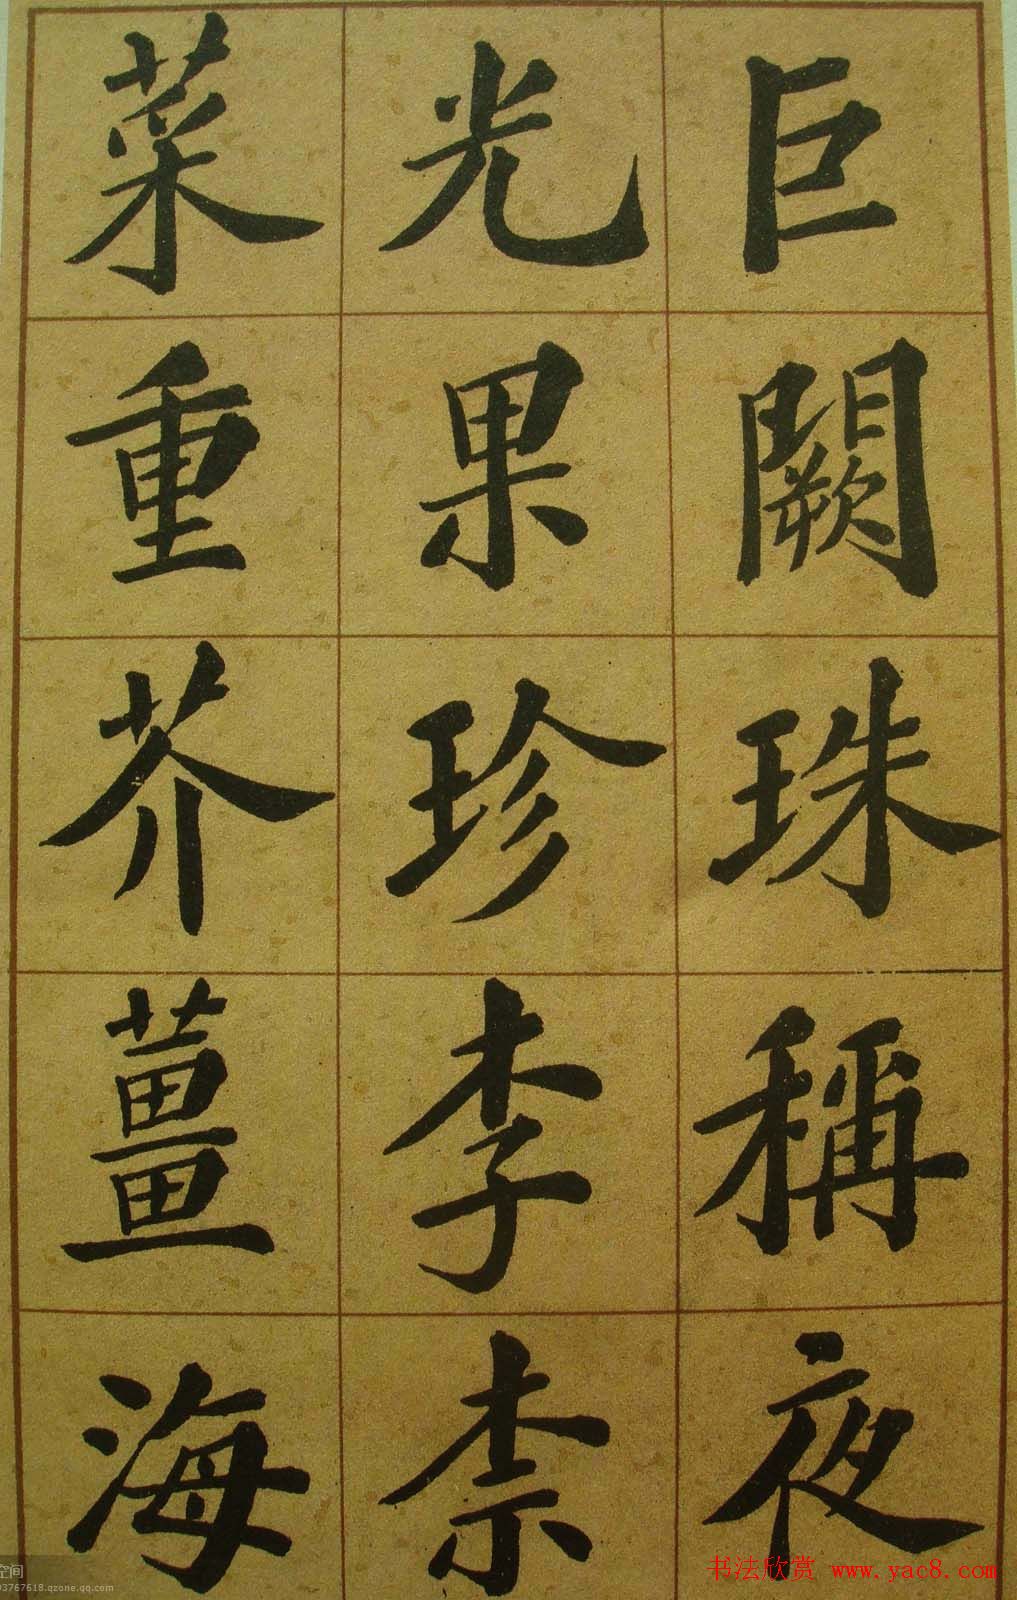 巨闕珠稱夜
光果珍李柰
菜重芥薑海
书法欣赏 www.yac8.com
空间
03767618.qzone.qq.com